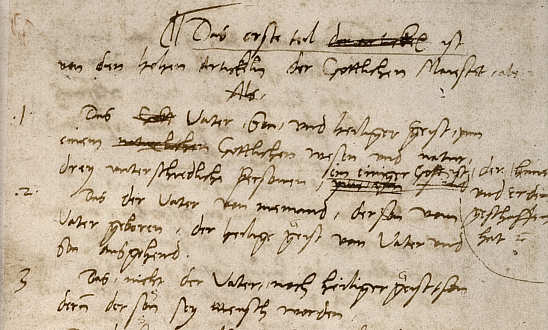 Das erste teil der artikel ist
von den hohen Artickeln der Gottlichen Maiestet, als
Als.
.1. Das Gott Vater, Son, und heiliger geist, ynn
einem naturlichen Gottlichen wesen und natur,
drey unterschiedliche personen, ein einiger Gott ist, der himel
und erden
geschaffen
hat
.2. Das der Vater von niemand, der son vom
Vater geboren, der heilige geist von Vater und
Son ausgehend.
3 Das, nicht der Vater, noch heiliger geist, son
dern der son sey mensch worden,